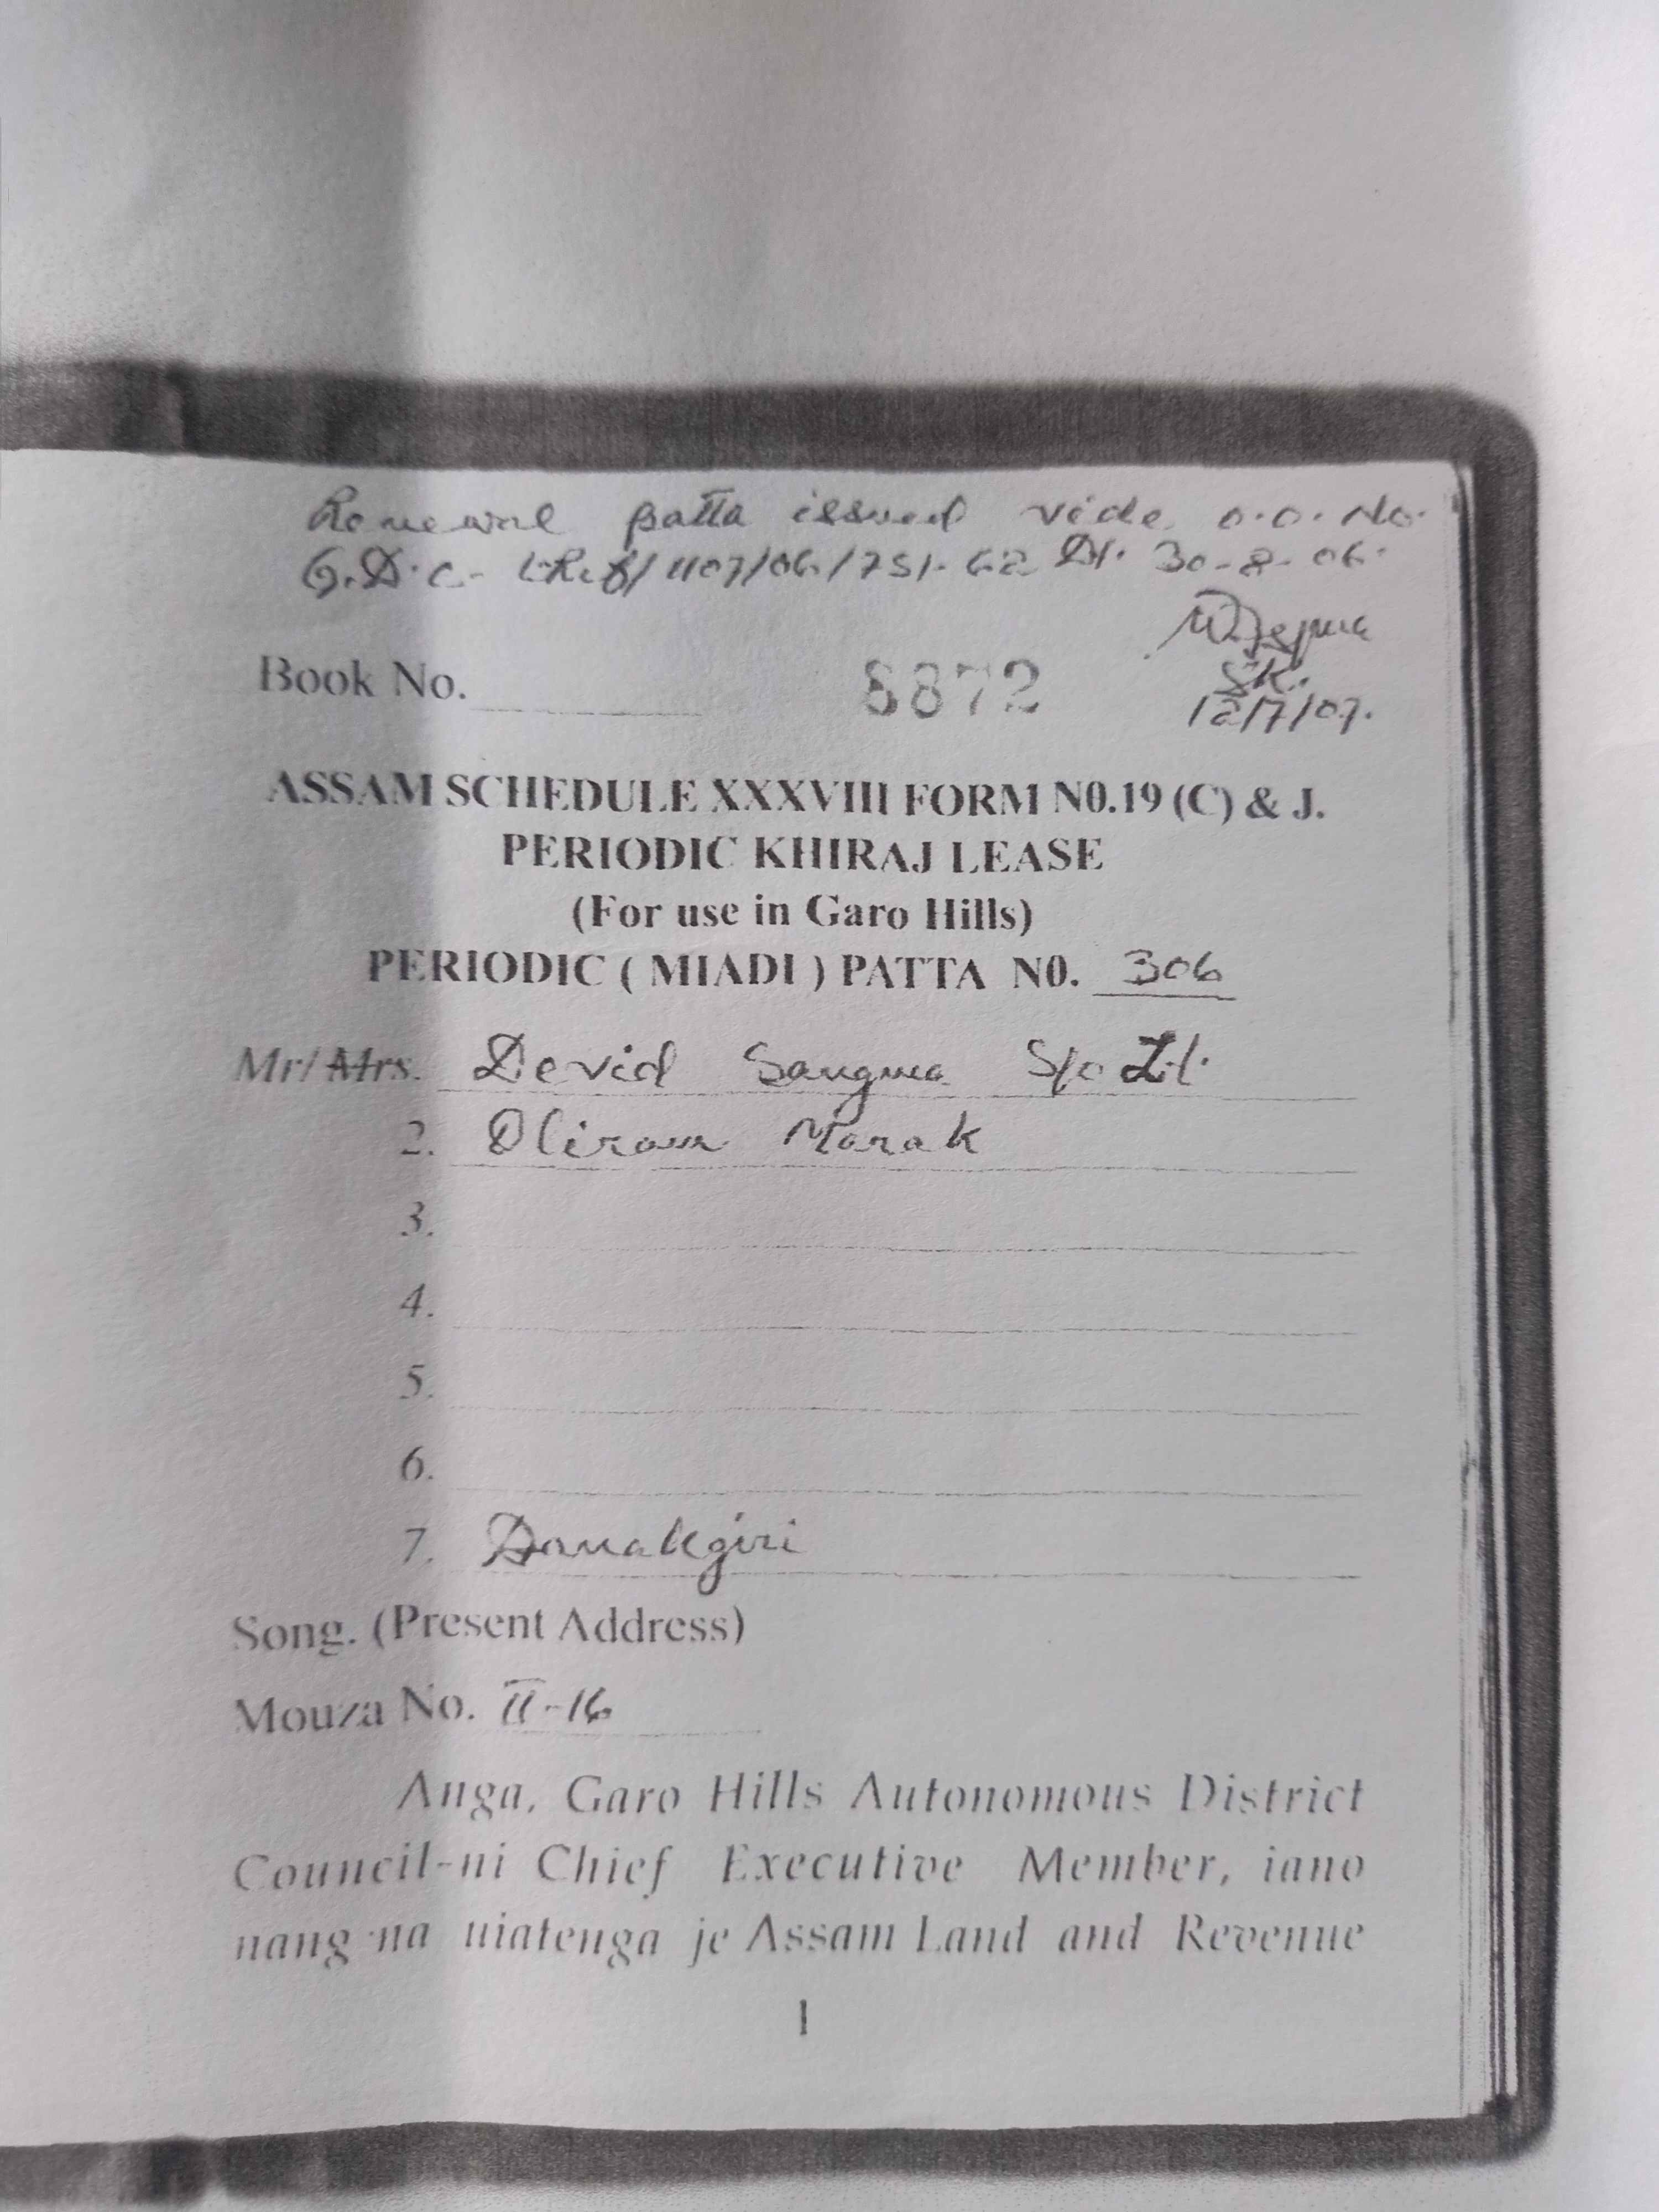 Renewal patta issued vide o.o. No.
G.D.C. /1107/06/751-62 Dt. 30-8-06.
S.K.
Book No. 8872
12/7/07.
ASSAM SCHEDULE XXXVIII FORM N0.19 (C) & J.
PERIODIC KHIRAJ LEASE
(For use in Garo Hills)
PERIODIC ( MIADI ) PATTA N0. 306
Mr/Mrs. Devid Sangma S/o Lt.
2. Oliram Marak
3.
4.
5.
6.
7. Danakgiri
Song. (Present Address)
Mouza No. II-16
Anga, Garo Hills Autonomous District
Council-ni Chief Executive Member, iano
nang·na uiatenga je Assam Land and Revenue
1